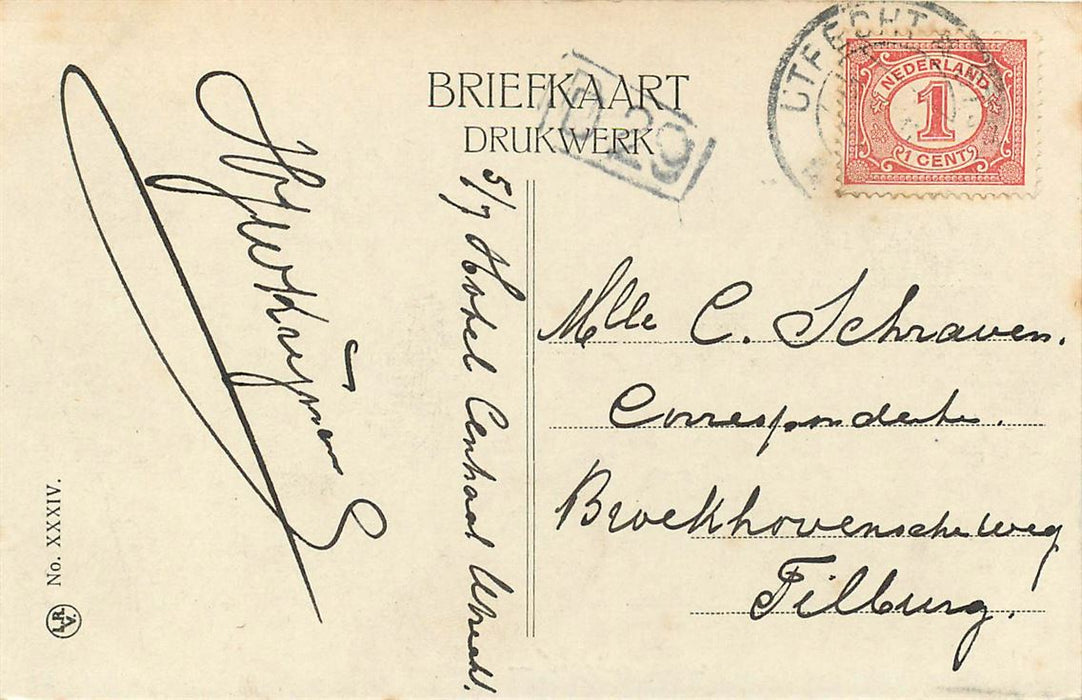 BRIEFKAART
DRUKWERK
UTRECHT
NEDERLAND
1
1 CENT
29
5/7 Hotel Centraal Utrecht.
Mlle C. Schraven.
Correspondente.
Broekhovenscheweg
Tilburg.
No. XXXIV.